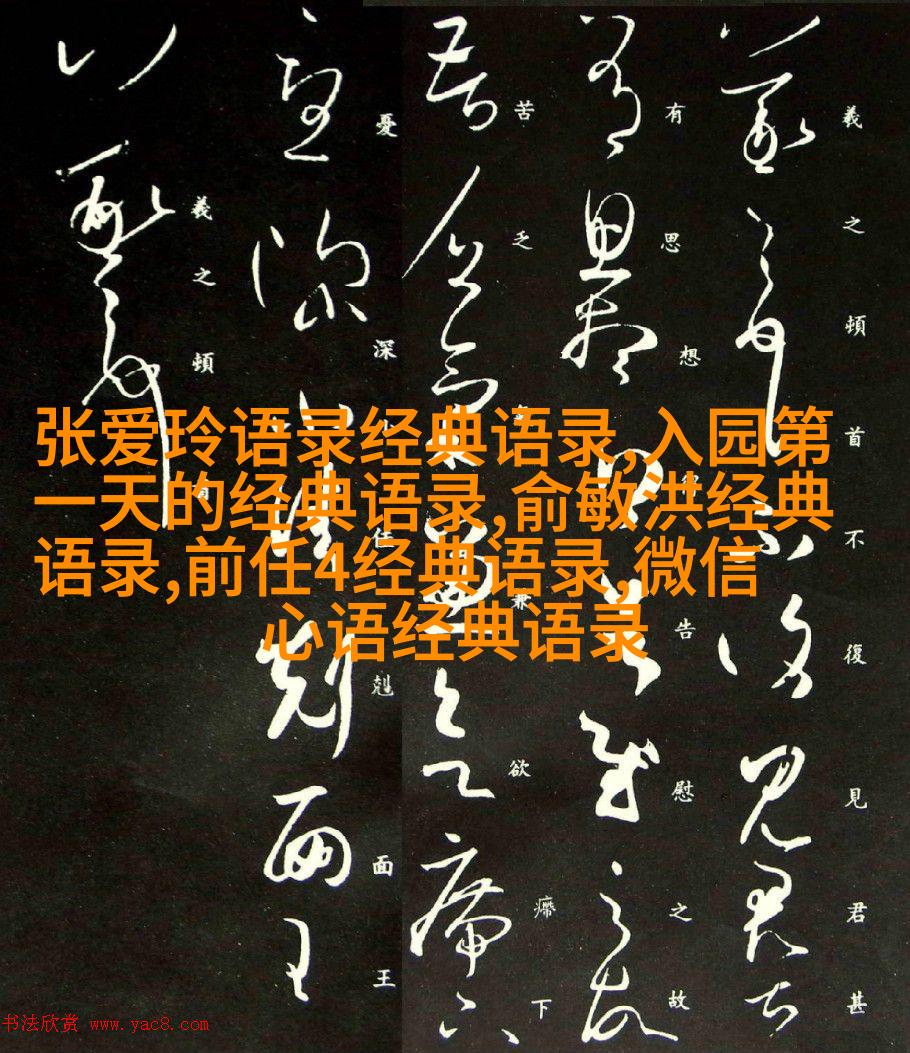 张爱玲语录经典语录,入园第
一天的经典语录,俞敏洪经典
语录,前任4经典语录,微信
心语经典语录
羲之頓首不復見君甚
有思想告慰之故
苦乏兼欲㿃下
憂深佳剋面王
羲之頓
书法欣赏 www.yac8.com